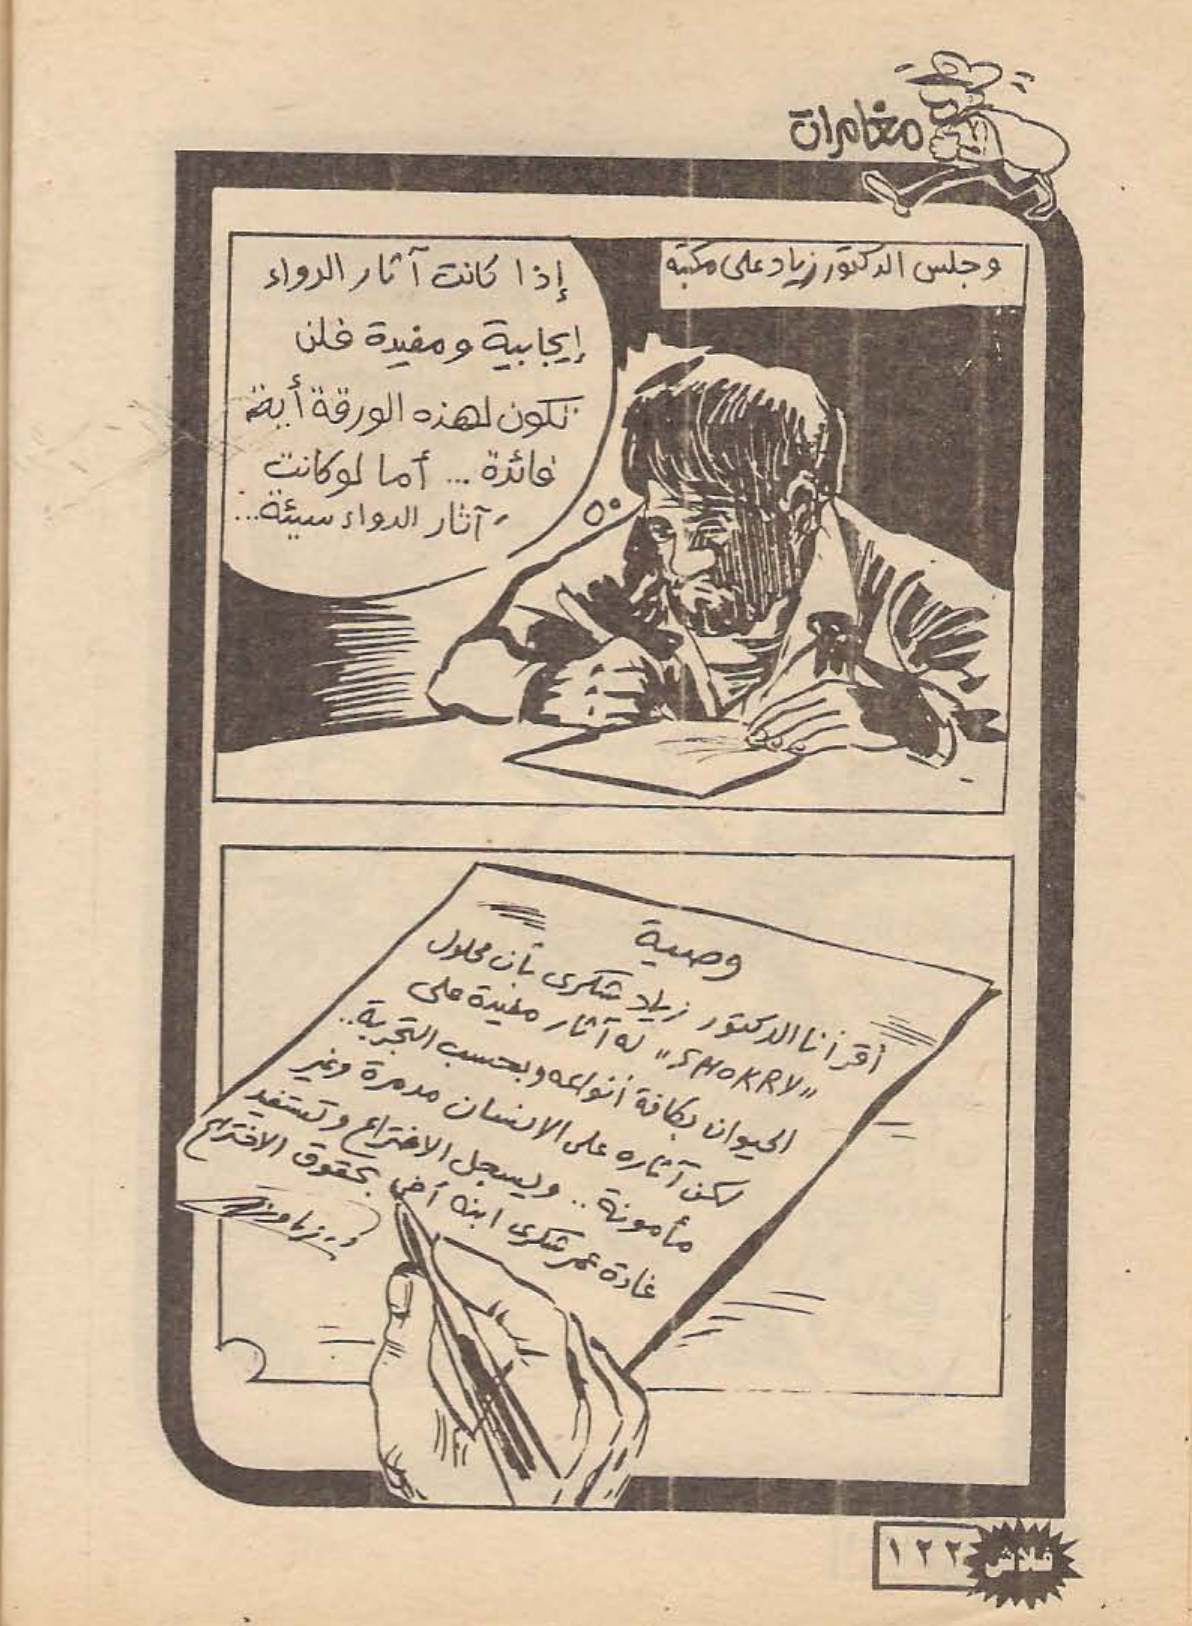 مغامرات
وجلس الدكتور زياد على مكتبه
إذا كانت آثار الدواء
إيجابية ومفيدة فلن
تكون لهذه الورقة أية
فائدة ... أما لو كانت
آثار الدواء سيئة...
وصية
أقر أنا الدكتور زياد شكرى بأن محلول
"SHOKRY" له آثار مفيدة على
الحيوان بكافة أنواعه وبحسب التجربة..
لكن آثاره على الانسان مدمرة وغير
مأمونة .. ويسجل الاختراع وتستفيد
غادة عمر شكرى ابنة أخى بحقوق الاختراع
فلاش ١٢٢